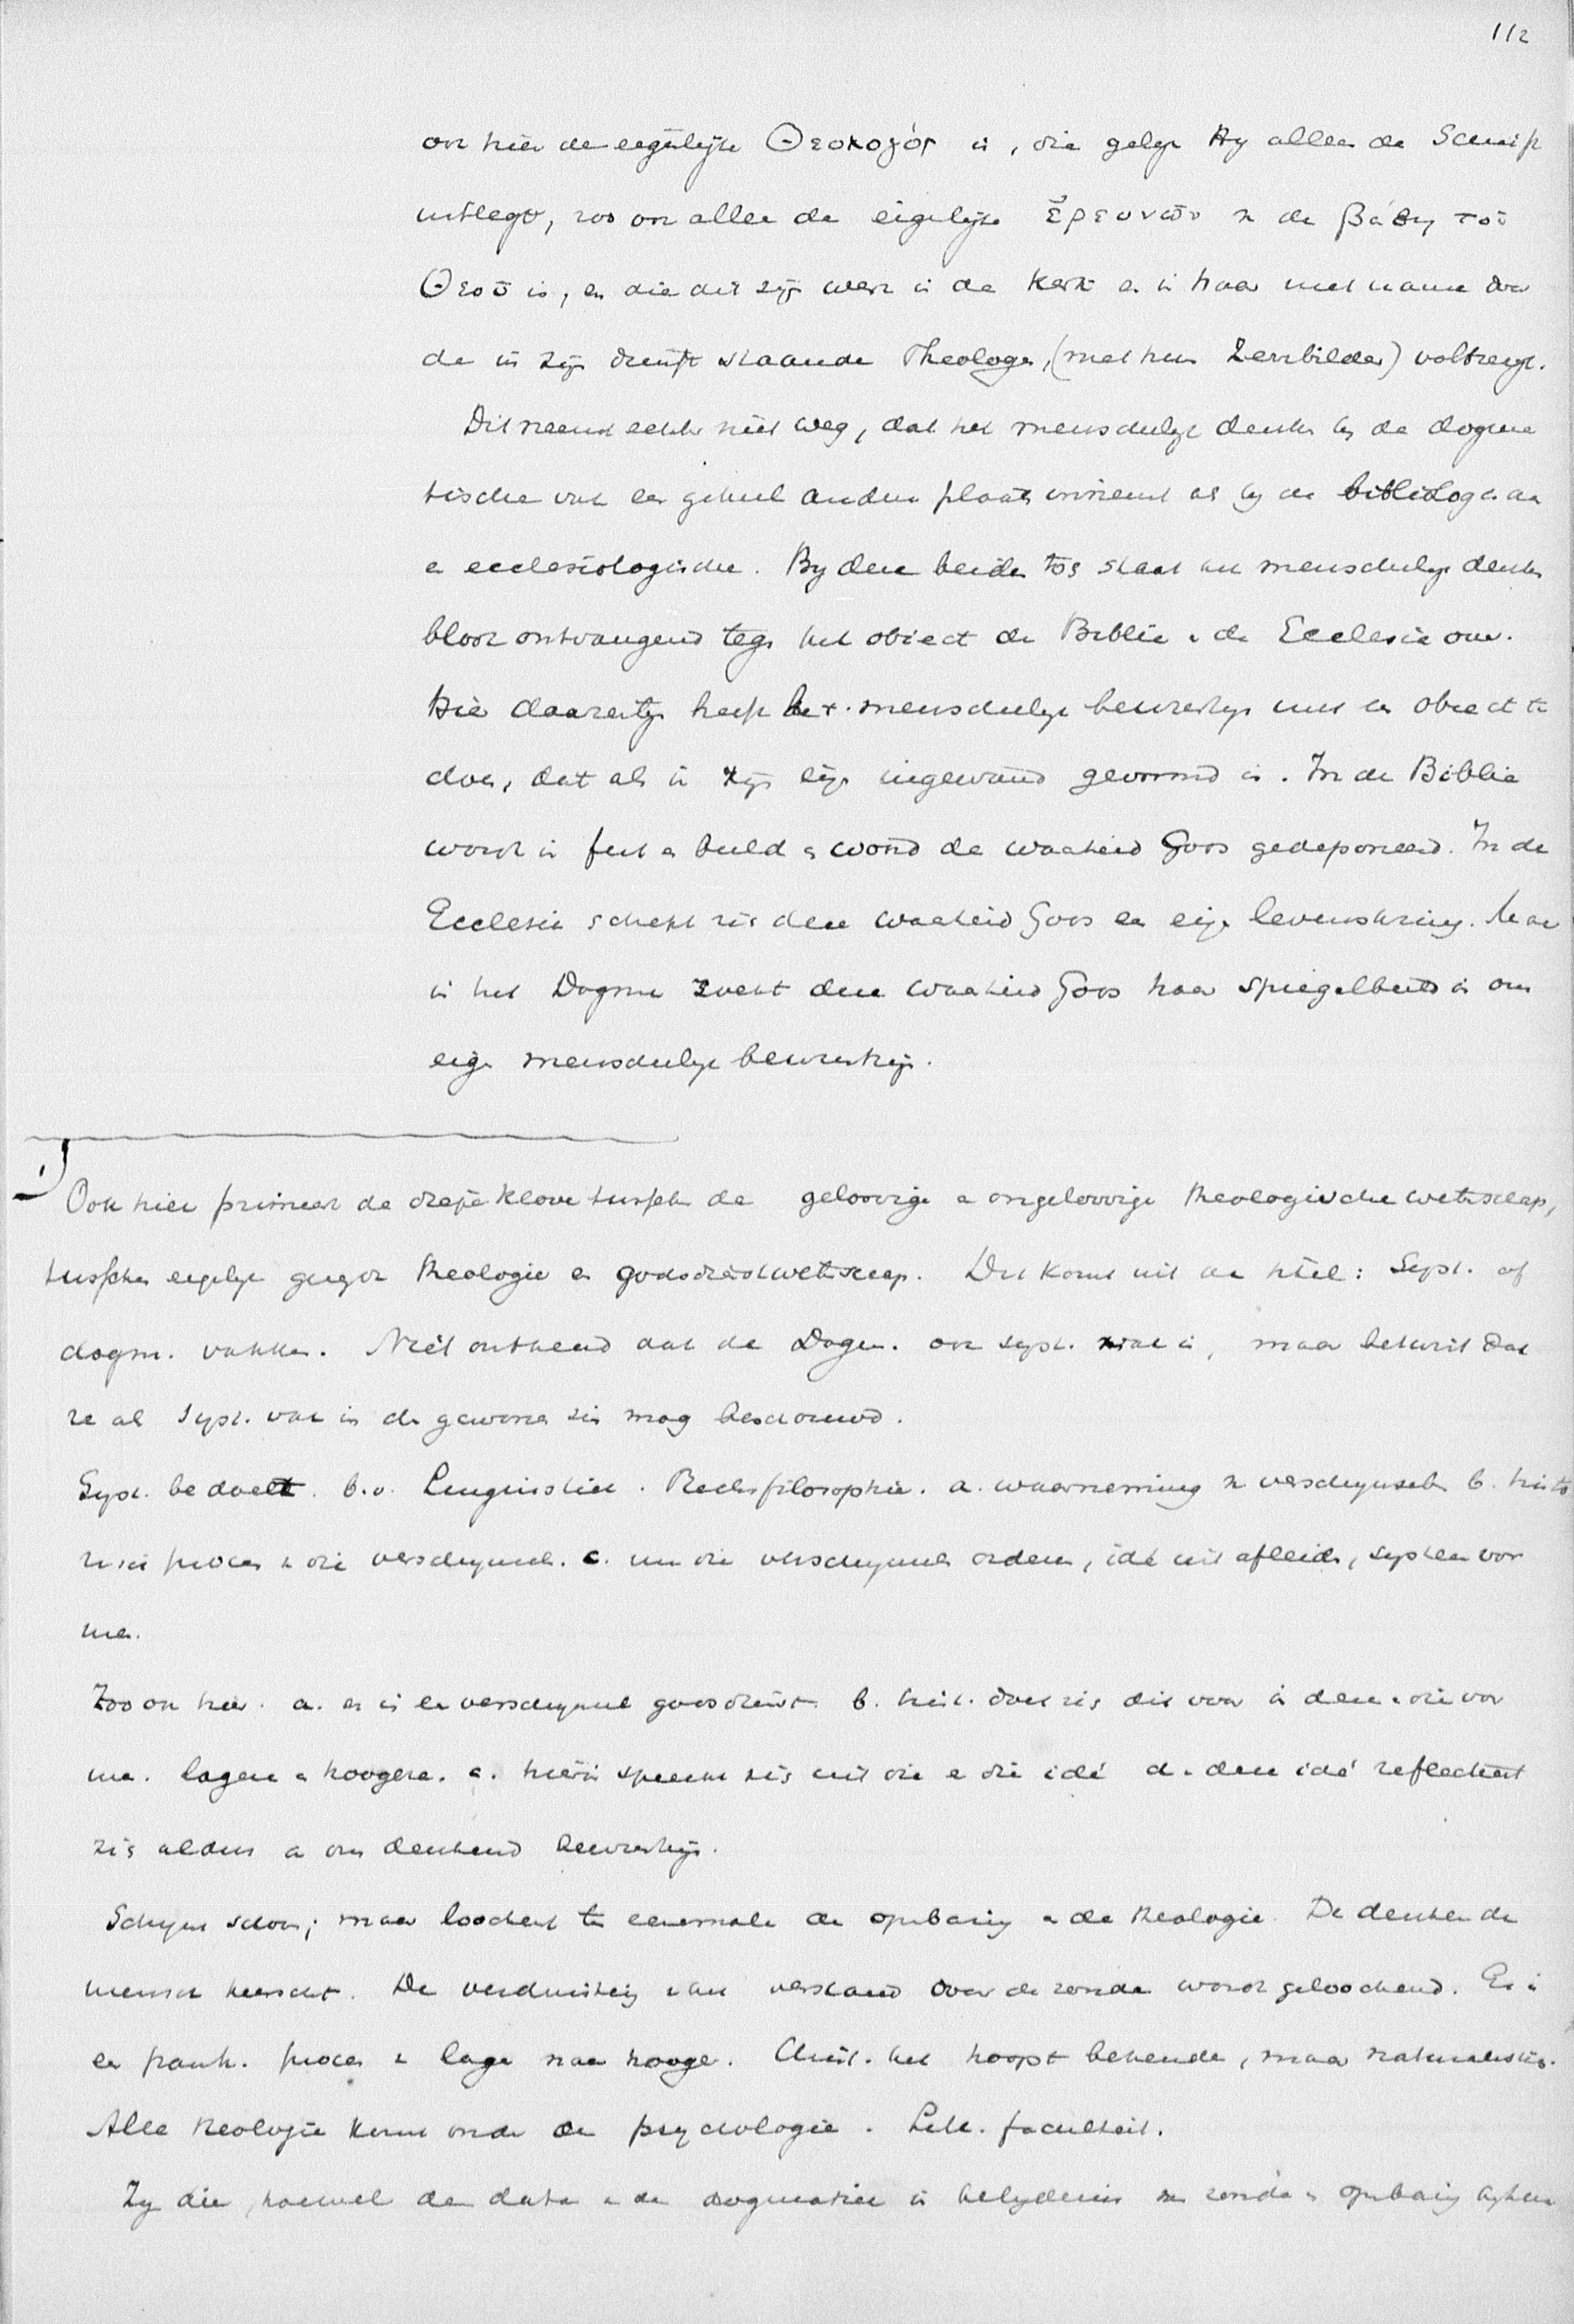 112
ook hier de eigenlijke Θεολογός is, die gelijk Hy alleen de Schrift
uitlegt, zoo ook alleen de eigenlijke ἐρευνῶν v. de βάθη τοῦ
Θεοῦ is, en die dit zijn werk in de Kerk en in haar met name door
de in zijn dienst staande Theologen, (met hun Zerrbilder) volbrengt.
Dit neemt echter niet weg, dat het menschelijk denken by de dogma
tische vak een geheel andere plaats inneemt als by de bibliologische
en ecclesiologische. By deze beide toch staat het menschelijk denken
bloot ontvangend tegen het object de Biblia en de Ecclesia over.
Hier daarentegen heeft het menschelijk bewustzijn met een object te
doen, dat als in zijn eigen ingewand gevormd is. In de Biblia
wordt in feit en beeld en woord de waarheid Gods gedeponeerd. In de
Ecclesia schept zich deze waarheid Gods een eigen levenskring. Maar
in het Dogma zoekt deze waarheid Gods haar spiegelbeeld in ons
eigen menschelijk bewustzijn.
1)
Ook hier primeert de diepe klove tusschen de geloovige en ongeloovige theologische wetenschap,
tusschen eigenlijk gezegde theologie en godsdienstwetenschap. Dit komt uit de titel: Syst. of
dogm. vakken. Niet ontkend dat de Dogm. ook syst. vak is, maar betwist dat
ze als syst. vak in de gewonen zin mag beschouwd.
Syst. bedoelt. b.v. Linguistiek. Rechtsfilosophie. a. waarneming v. verschijnselen b. histo
risch proces v. die verschijnsel. c. nu die verschijnsels ordenen, idé uit afleiden, systeem vor
men.
Zoo ook hier. a. er is een verschijnsel godsdienst b. hist. doet zich dit voor in deze en die vor
men. lagere en hoogere. c. hierin spreekt zich uit die en die idé d. deze idé reflecteert
zich aldus in ons denkend bewustzijn.
Schynt schoon; maar loochent te eenenmale de openbaring en de theologie. De denkende
mensch heerscht. De verduistering v. het verstand door de zonde wordt geloochend. Er is
een panth. proces v. lager naar hooger. Christ. het hoogst bekende, maar naturalistisch.
Alle theologie komt onder de psychologie. Lett. faculteit.
Zy die, hoewel de data v. de dogmatiek in belydenis van zonde en openbaring